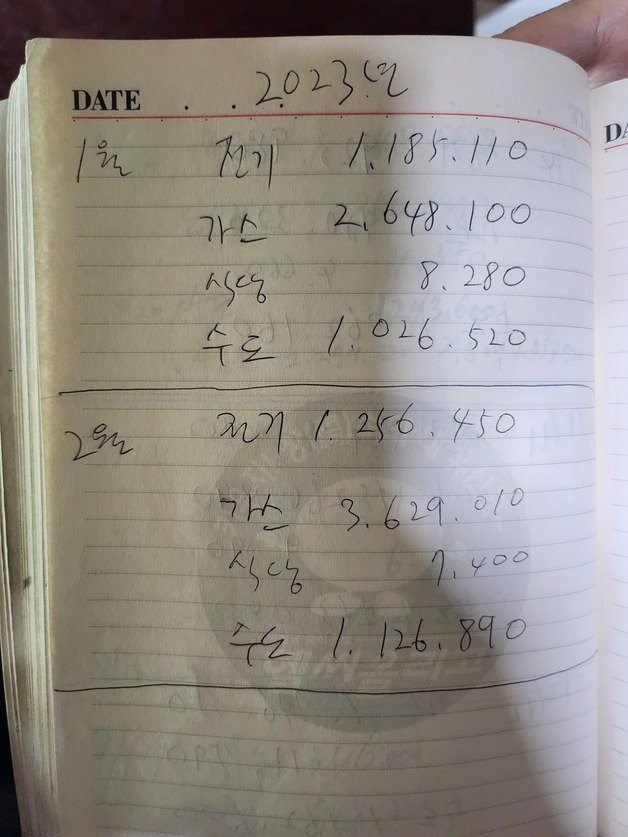 DATE . . . 2.023년
1월 전기 1.185.110
가스 2.648.100
식당 8.280
수도 1.026.520
2월 전기 1.256.450
가스 3.629.010
식당 7.400
수도 1.126.890